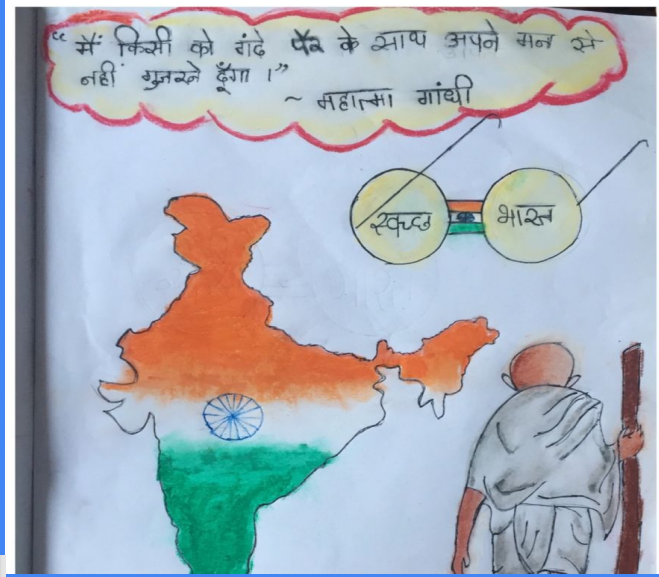 “ मैं किसी को गंदे पैर के साथ अपने मन से
नहीं गुजरने दूँगा ।”
~ महात्मा गांधी
स्वच्छ भारत